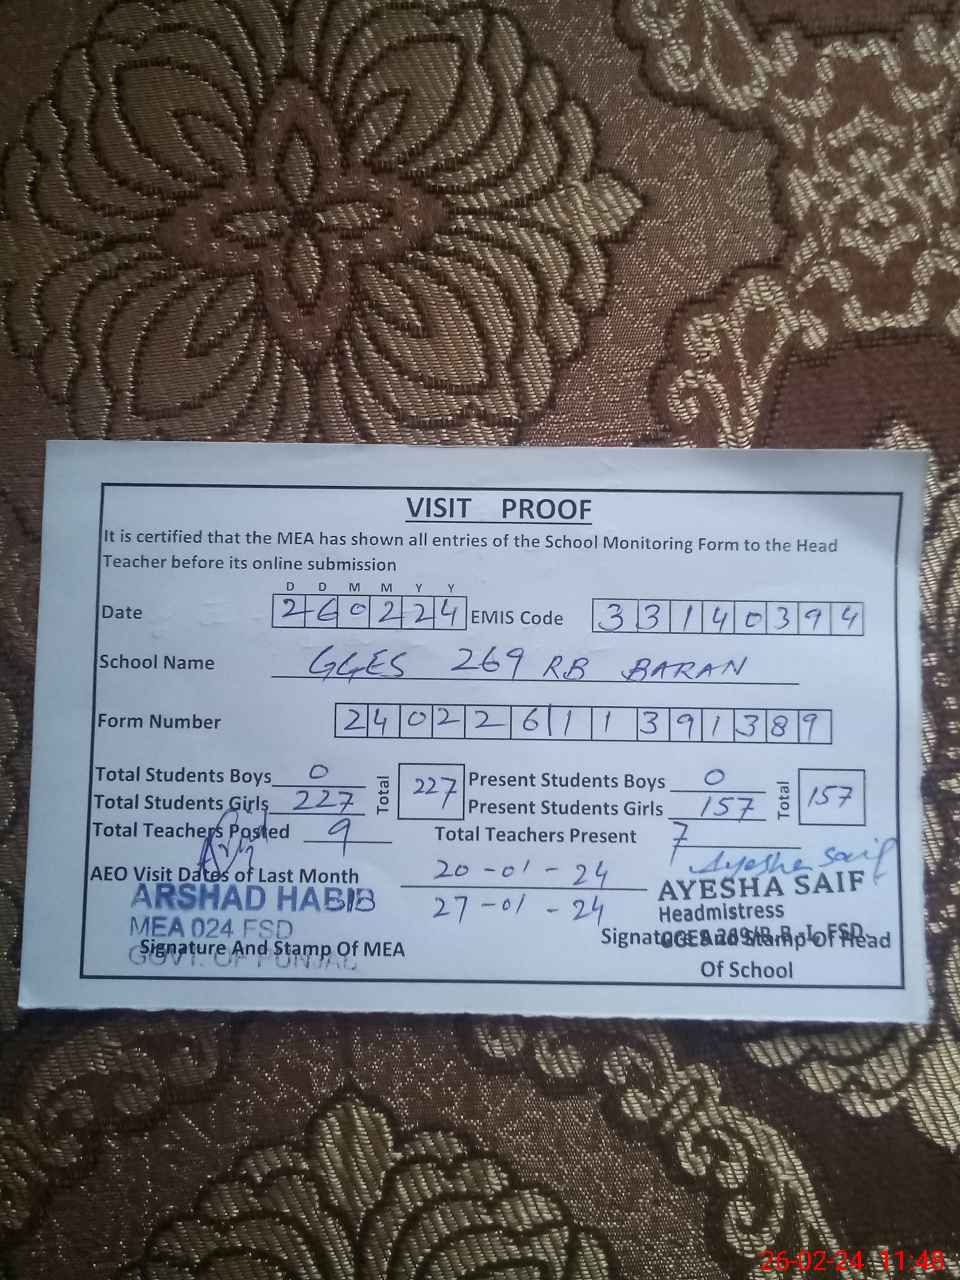 VISIT PROOF
It is certified that the MEA has shown all entries of the School Monitoring Form to the Head
Teacher before its online submission
D D M M Y Y
Date 260224 EMIS Code 33140394
School Name GGES 269 RB BARAN
Form Number 24022611391389
Total Students Boys 0 Total 227 Present Students Boys 0 Total 157
Total Students Girls 227 Present Students Girls 157
Total Teachers Posted 9 Total Teachers Present 7
Ayesha Saif
AEO Visit Dates of Last Month 20-01-24
27-01-24
ARSHAD HABIB
MEA 024 FSD
GOVT. OF PUNJAB
Signature And Stamp Of MEA
AYESHA SAIF
Headmistress
GGES 269/R.B. FSD
Signature And Stamp Of Head
Of School
26-02-24 11:48